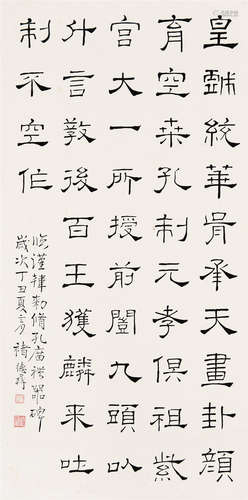 皇戲統華胥承天畫卦顏
育空桒孔制元孝俱祖紫
宮大一所授前闓九頭以
升言教後百王獲麟來吐
制不空作
臨漢韓勑脩孔廟禮器碑
歲次丁丑夏 褚德彝